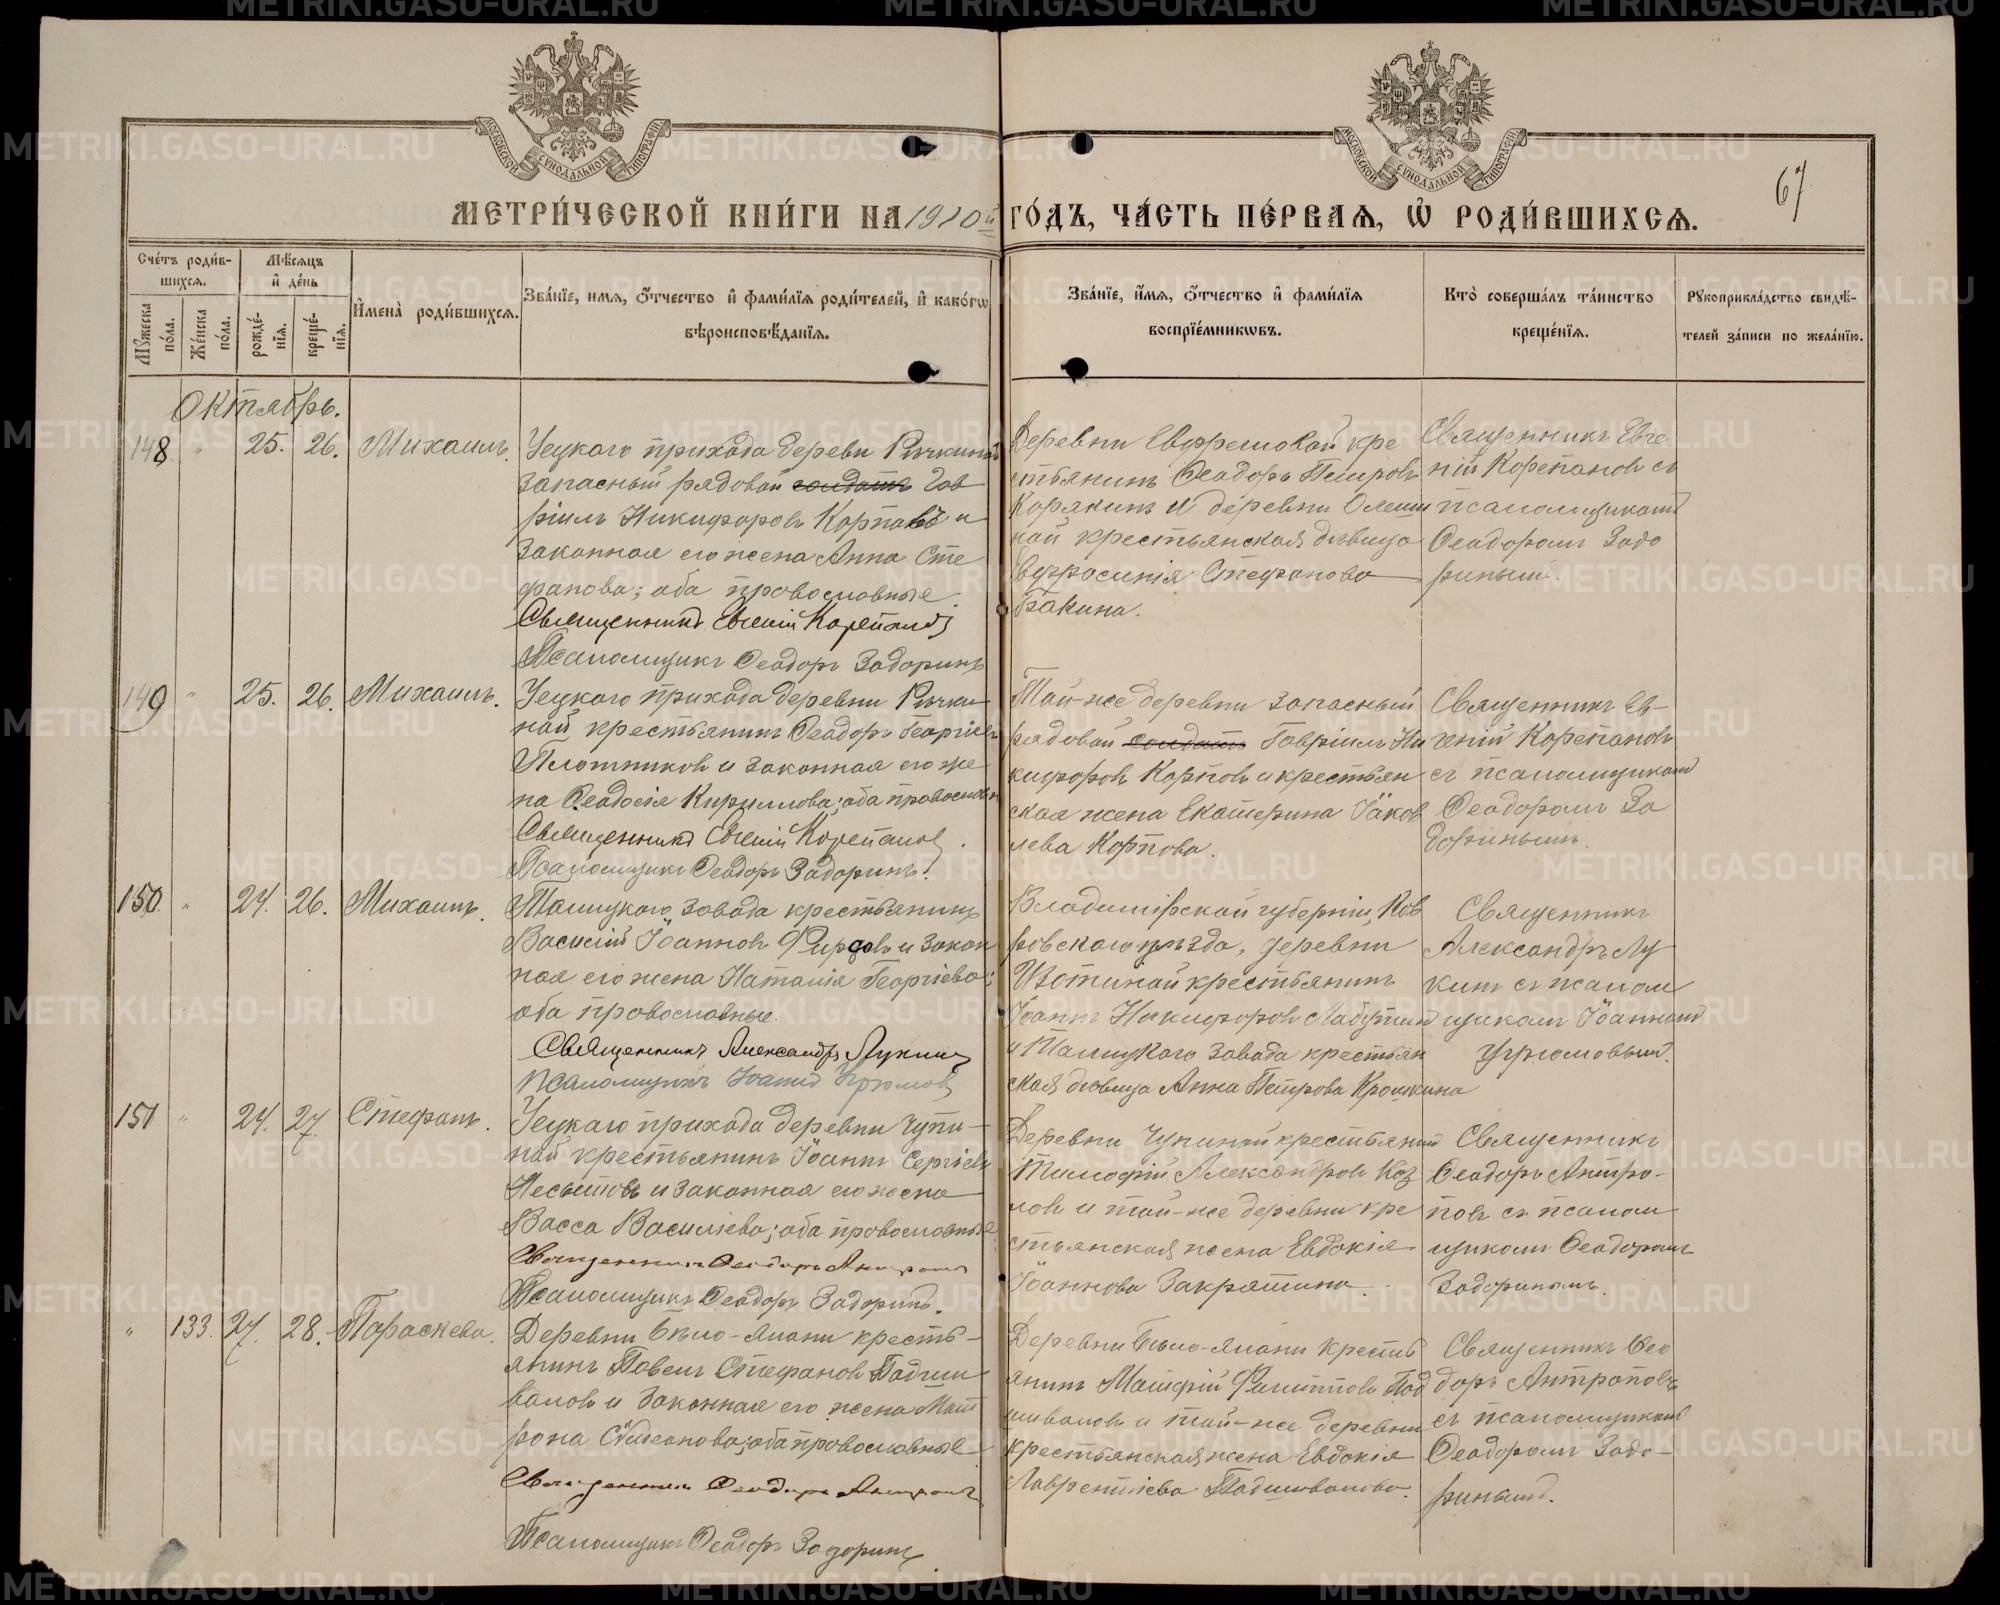 МЕТРИ́ЧЕСКОЙ КНИ́ГИ НА 1910й ГО́ДЪ, ЧА́СТЬ ПЕ́РВАѦ, Ѡ҆ РОДИ́ВШИХСѦ.
67
Сче́тъ роди́в-
шихсѧ.
Мѣ́сѧцъ
и҆ де́нь
Мꙋ́жеска по́ла.
Же́нска по́ла.
рожде́-нїѧ.
креще́-нїѧ.
И҆мена̀ роди́вшихсѧ.
Зва́нїе, и́мѧ, о́тчество и҆ фами́лїѧ роди́телей, и҆ како́гѡ
вѣроисповѣ́данїѧ.
Зва́нїе, и́мѧ, о́тчество и҆ фами́лїѧ
воспрїе́мникѡвъ.
Кто̀ соверша́лъ та́инство
креще́нїѧ.
Рꙋкоприкла́дство свидѣ́-
телей за́писи по жела́нїю.
Октябрь.
148 " 25. 26. Михаилъ.
Уецкаго прихода деревни Ричкиной
запасный рядовой солдатъ Гав
рiилъ Никифоровъ Карповъ и
законная его жена Анна Сте
фанова; оба православные.
Священникъ Евгенiй Корепановъ
Псаломщикъ Ѳеодоръ Задоринъ
Деревни Евфремовой кре
стьянинъ Ѳеодоръ Петровъ
Корякинъ и деревни
ной крестьянская дѣвица
Евфросинiя Стефанова
Бакина.
Священникъ Евге
нiй Корепановъ съ
псаломщикомъ
Ѳеодоромъ Задо
ринымъ.
149 " 25. 26. Михаилъ.
Уецкаго прихода деревни Рички
ной крестьянинъ Ѳеодоръ Георгiевъ
Плотниковъ и законная его же
на Ѳеодосiя Кириллова; оба православн
Священникъ Евгенiй Корепановъ.
Псаломщикъ Ѳеодоръ Задоринъ.
Той-же деревни запасный
рядовой солдатъ Гаврiилъ Ни
кифоровъ Карповъ и крестьян
ская жена Екатерина Iаков
лева Карпова.
Священникъ Ев-
генiй Корепановъ
съ псаломщикомъ
Ѳеодоромъ За
доринымъ.
150. " 24. 26. Михаилъ.
Талицкаго завода крестьянинъ
Василiй Iоанновъ Фирсовъ и закон
ная его жена Наталiя Георгiева;
оба православные.
Священникъ Александръ Лукинъ
Псаломщикъ Iоаннъ Угрюмовъ
Владимiрской губернiи, Ков
ровскаго уѣзда, деревни
Изотиной крестьянинъ
Iоаннъ Никифоровъ Лабутинъ
и Талицкаго завода крестьян
ская дѣвица Анна Петрова
Священникъ
Александръ Лу
кинъ съ псалом
щикомъ Iоанномъ
Угрюмовымъ.
151 " 24. 27. Стефанъ.
Уецкаго прихода деревни Чупи-
ной крестьянинъ Iоаннъ Сергiевъ
Несытовъ и законная его жена
Васса Васильева; оба православные
Священникъ Ѳеодоръ Антроповъ
Псаломщикъ Ѳеодоръ Задоринъ.
Деревни Чупиной крестьянинъ
Тимофiй Александровъ Коз
ловъ и той-же деревни кре
стьянская жена Евдокiя
Iоаннова Закрятина.
Священникъ
Ѳеодоръ Антро-
повъ съ псалом
щикомъ Ѳеодоромъ
Задоринымъ.
" 133. 27. 28. Параскева.
Деревни Бѣло-Елани кресть-
янинъ Павелъ Стефановъ Подши
валовъ и законная его жена Мат
рона Симеонова; оба православные
Священникъ Ѳеодоръ Антроповъ
Псаломщикъ Ѳеодоръ Задоринъ.
Деревни Бѣло-Елани кресть
янинъ Матфiй Филипповъ Под
шиваловъ и той-же деревни
крестьянская жена Евдокiя
Лаврентiева Подшивалова.
Священникъ Ѳео
доръ Антроповъ
съ псаломщикомъ
Ѳеодоромъ Задо-
ринымъ.
METRIKI.GASO-URAL.RU